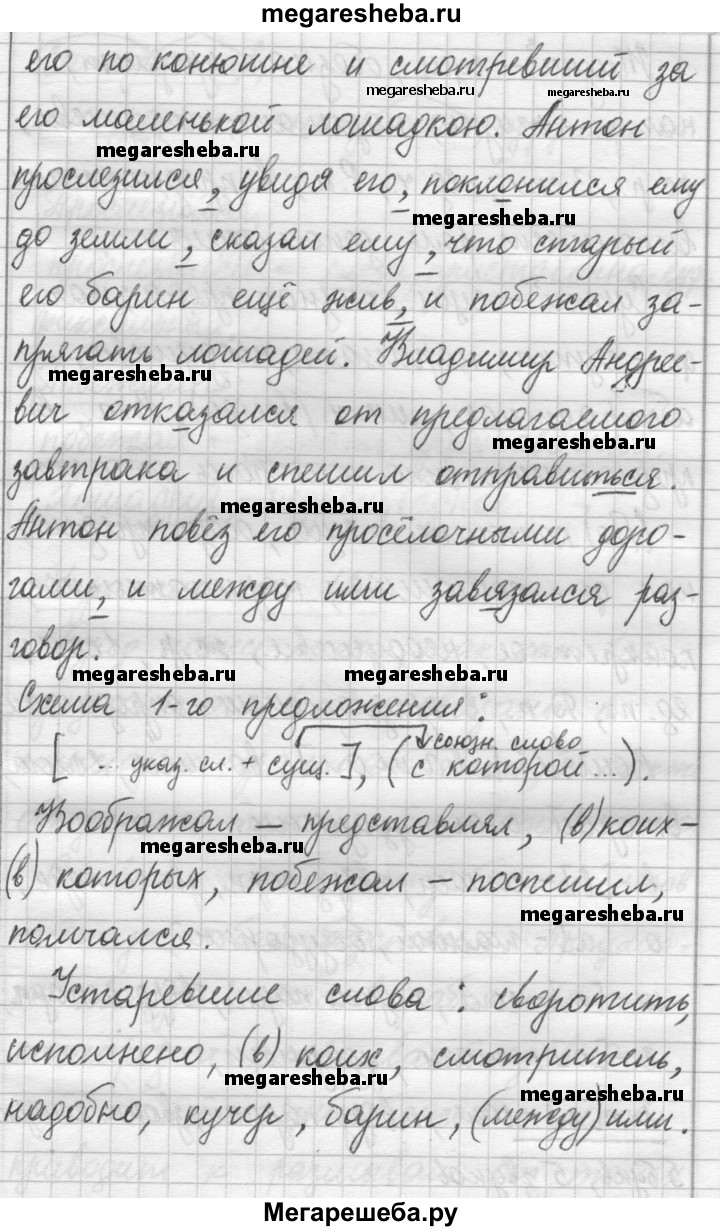 megaresheba.ru
его по конюшне и смотревший за
megaresheba.ru megaresheba.ru
его маленькой лошадкою. Антон
megaresheba.ru
прослезился, увидя его, поклонился ему
megaresheba.ru
до земли, сказал ему, что старый
его барин ещё жив, и побежал за-
прягать лошадей. Владимир Андрее-
megaresheba.ru
вич отказался от предлагаемого
megaresheba.ru
завтрака и спешил отправиться.
megaresheba.ru
Антон повёз его просёлочными доро-
гами, и между ими завязался раз-
говор.
megaresheba.ru megaresheba.ru
Схема 1-го предложения:
союзн. слово
[ ... указ. сл. + сущ. ], ( с которой ... ).
Воображал — представлял, (в) коих -
megaresheba.ru
(в) которых, побежал — поспешил,
megaresheba.ru
помчался.
Устаревшие слова: своротить,
исполнено, (в) коих, смотритель,
megaresheba.ru megaresheba.ru
надобно, кучер, барин, (между) ими.
Мегарешеба.ру